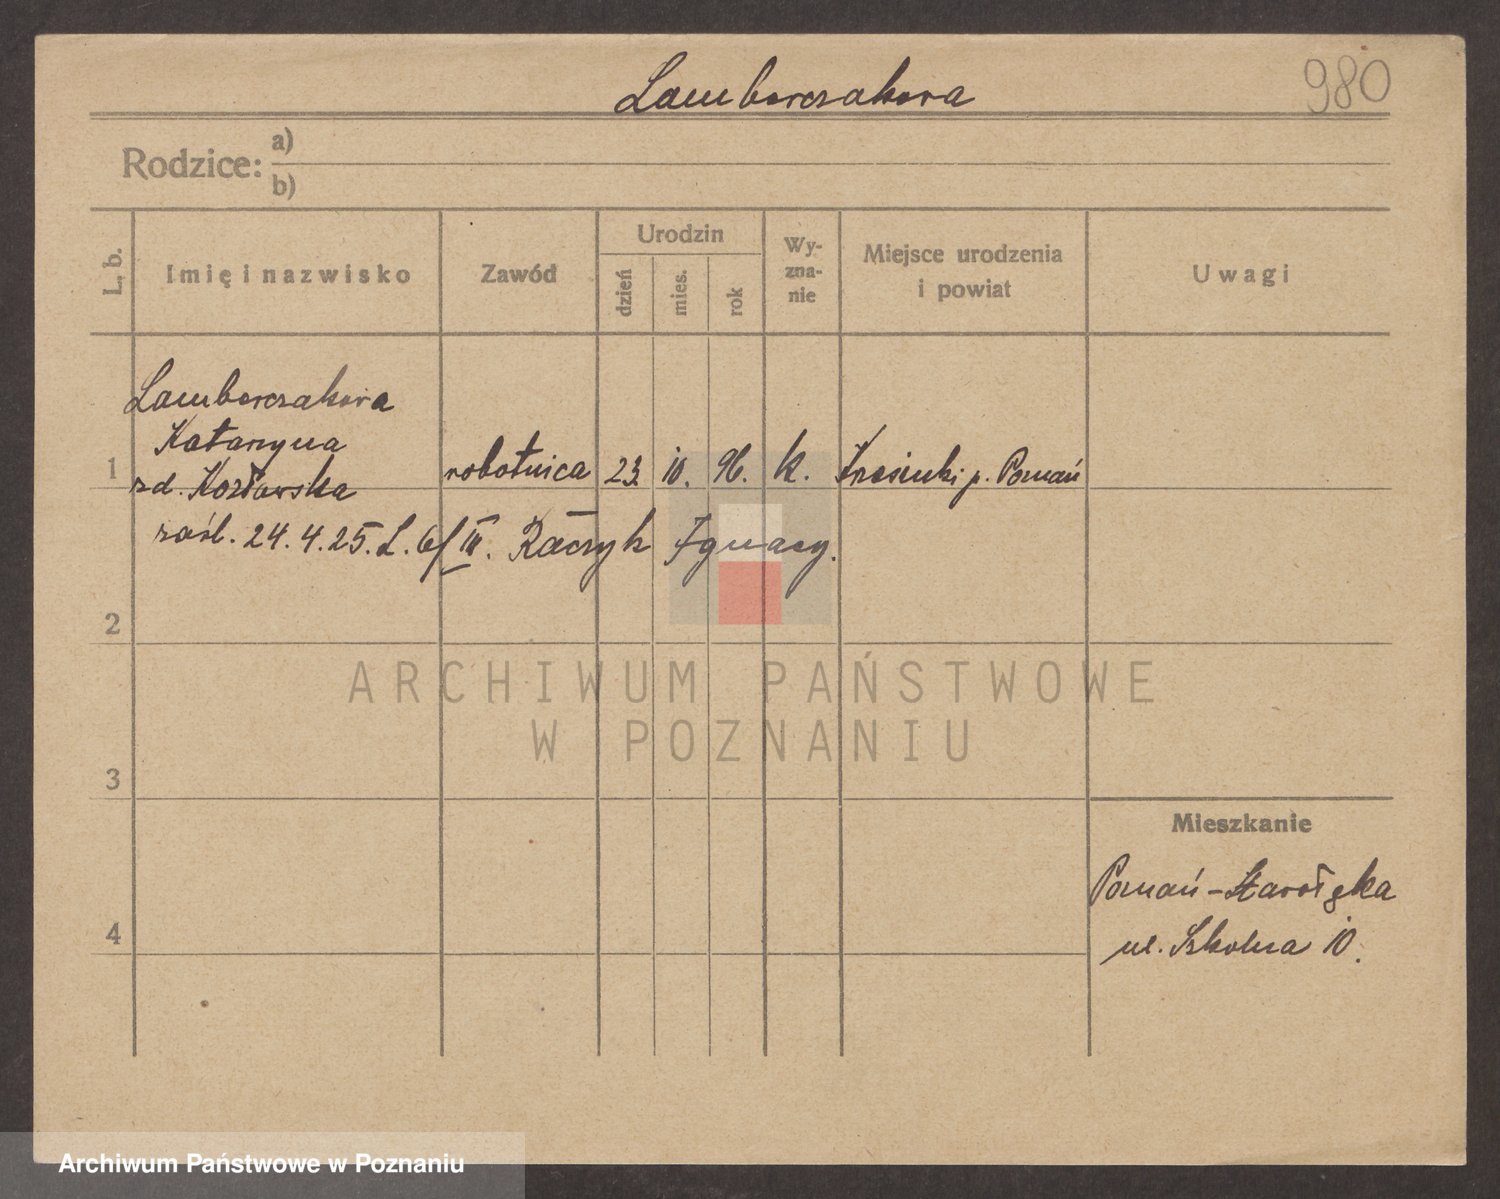 Lamberczakowa
980
Rodzice:
a)
b)
L. b.
Imię i nazwisko
Zawód
Urodzin
dzień
mies.
rok
Wy-
zna-
nie
Miejsce urodzenia
i powiat
Uwagi
Lamberczakowa
Katarzyna
1
zd. Kozłowska
robotnica
23.
10.
96.
k.
Krosinki p. Poznań
zaśl. 24.4.25. L. 6/III. Raczyk Ignacy.
2
ARCHIWUM PAŃSTWOWE
W POZNANIU
3
Mieszkanie
Poznań-Starołęka
4
ul. Szkolna 10.
Archiwum Państwowe w Poznaniu